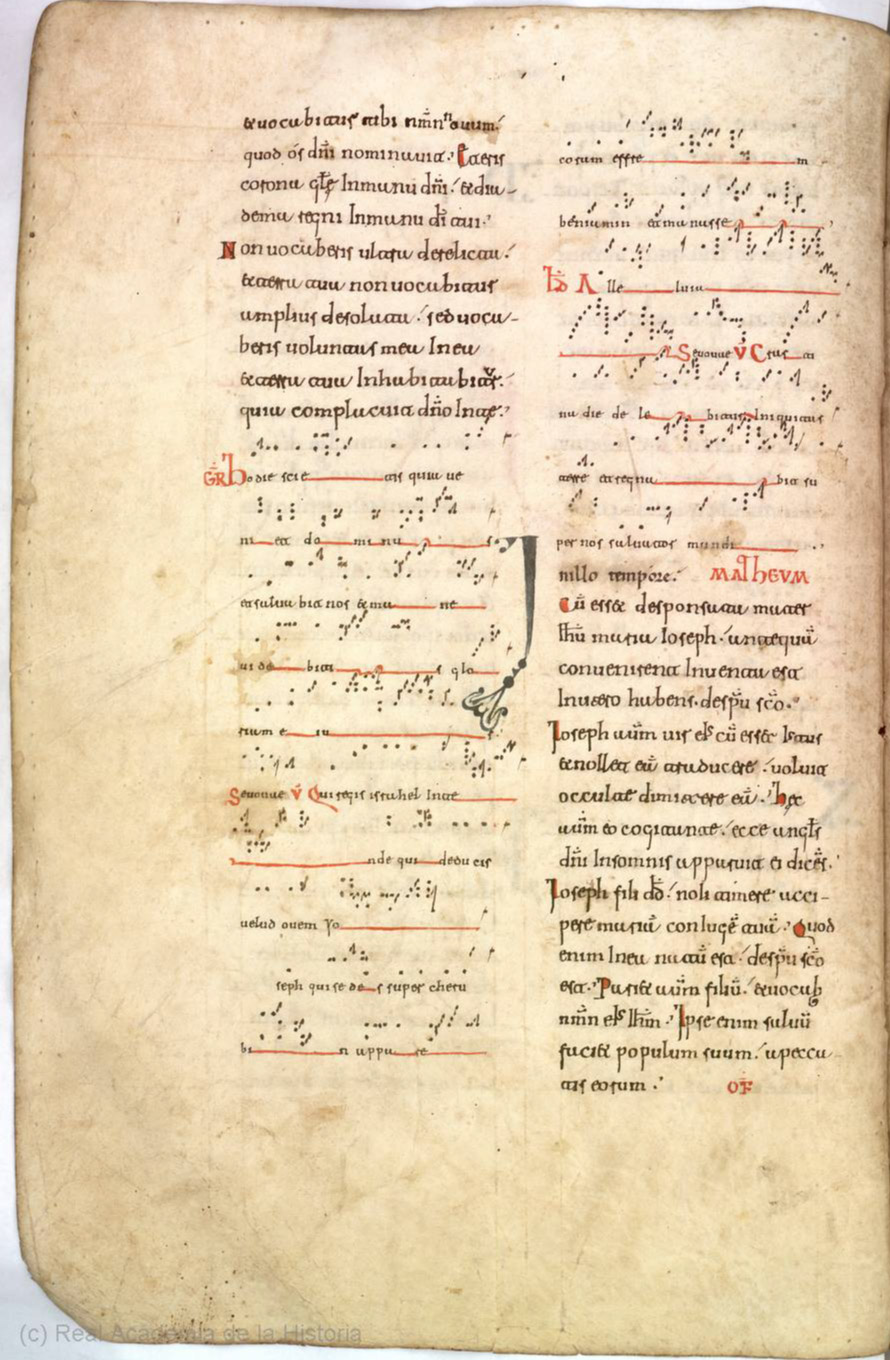 & uocabitur tibi nm̄ nouum.
quod ós dn̄i nominauit. Et eris
corona gl̄e In manu dn̄i. & dia-
dema regni In manu dī tui.
Non uocaberis ultra derelicta.
& terra tua non uocabitur
amplius desolata. sed uoca-
beris uoluntas mea In ea
& terra tua Inhabitabitur.
quia complacuit dn̄o In te.
GR̄ Hodie scietis quia ue
niet dominus
et saluabit nos & mane
uidebitis glo
riam eius
Seuouae V̄ Qui regis israhel Inte
nde qui deducis
uelud ouem Yo
seph qui sedes super cheru
bin appare
coram effrem
beniamin et manasse
Alleluia
Seuouae V̄ Crasti
na die delebitur Iniquitas
terre et regnabit su
per nos saluator mundi
In illo tempore. MATHEVM
Cū ess& desponsata mater
ih̄u maria Ioseph. antequā
conuenirent Inuenta est
In utero habens. de sp̄u sc̄o.
Ioseph aūm uir eīs cū ess& Iustus
& nollet eā traducere. uoluit
occulte dimittere eā. Hec
aūm eo cogitante. ecce angl̄s
dn̄i In somnis apparuit ei dicēs.
Ioseph fili dd̄. noli timere acci-
pere mariā coniugē tuā. Quod
enim In ea natū est. de sp̄u sc̄o
est. Pari& aūm filiū. & uocab
nm̄n eīs ih̄m. Ipse enim saluū
faci& populum suum. a pecca
tis eorum. OF̄
(c) Real Academia de la Historia